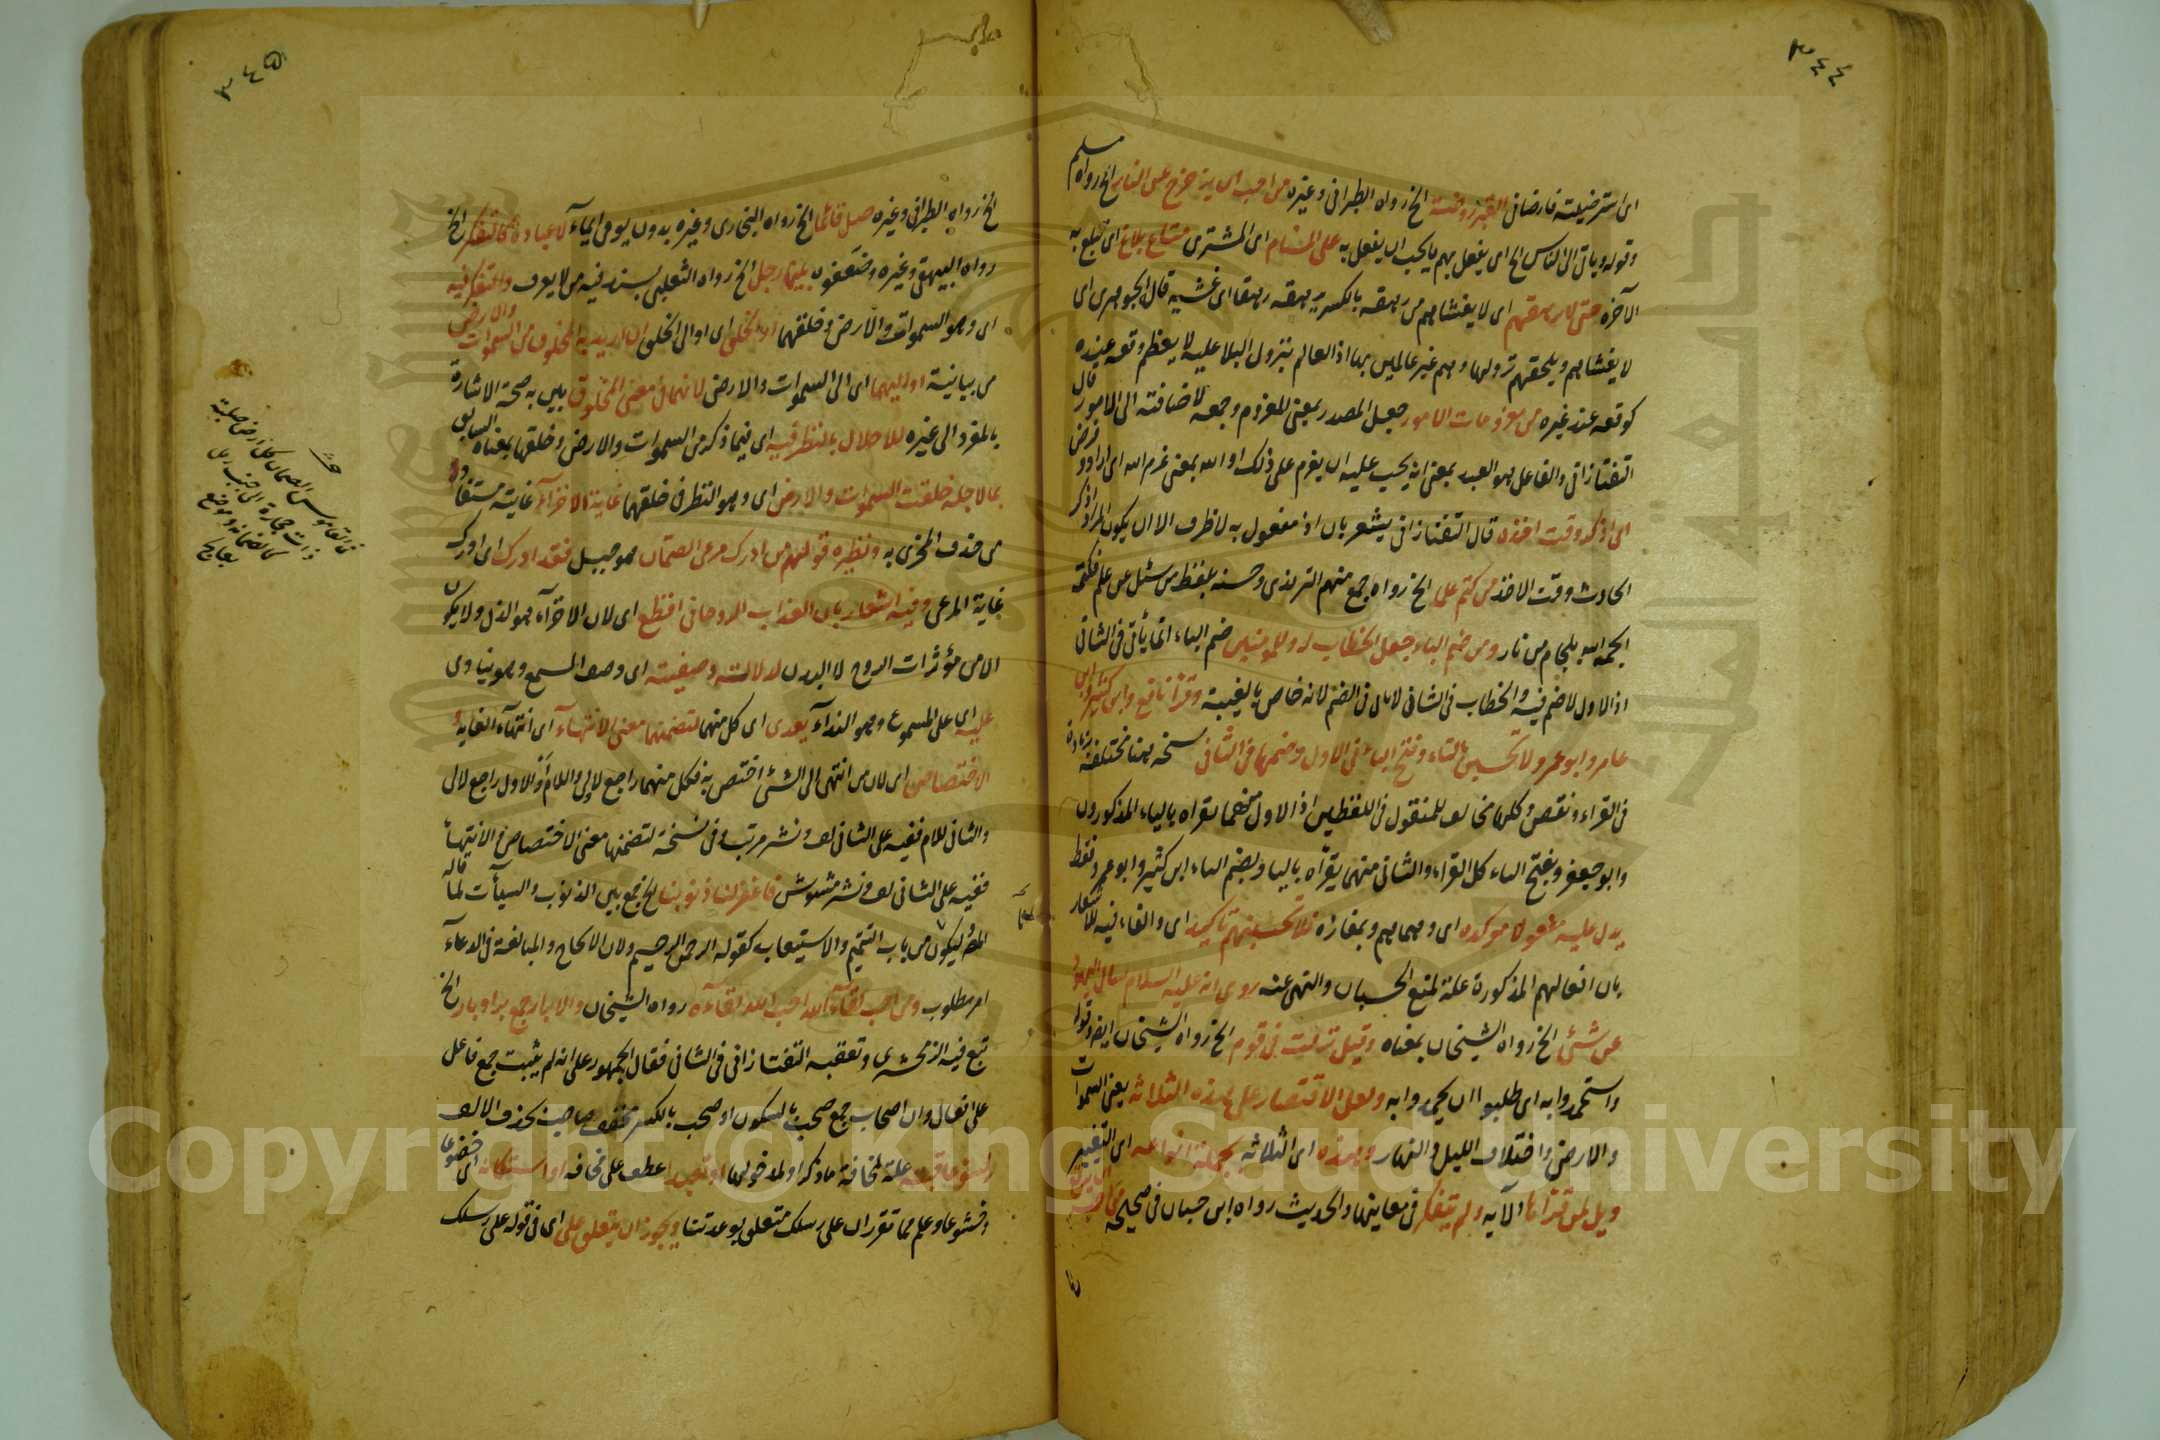 ٣٤٤
اى استرضيته فارضانى القبر روضة الخ رواه الطبرانى وغيره من احب ان يزحزح عن النار الخ رواه مسلم
وقوله ويأتى الى الناس الخ اى يفعل بهم ما يحب ان يفعل به على المستام اى المشترى متاع بلاغ اى تبلغ به
الآخرة حتى لا يرهقهم اى لا يغشاهم من رهقه بالكسر يرهقه رهقا اى غشيه قال الجوهرى اى
لا يغشاهم ويلحقهم نزولها وهم غير عالمين بها اذ العالم بنزول البلا عليه لا يعظم وقعه عنده
كوقعه عند غيره من معزومات الامور جعل المصدر بمعنى المعزوم وجمعه لاضافته الى الامور قال
التفتازانى والفاعل هو العبد بمعنى انه يجب عليه ان يعزم على ذلك او الله بمعنى عزم الله اى اراد وفرض
اى اذكر وقت اخذه قال التفتازانى يشعر بان اذ مفعول به لا ظرف الا ان يكون المراد اذكر
الحادث وقت الاخذ من كتم علما الخ رواه جمع منهم الترمذى وحسنه بلفظ من سئل عن علم فكتمه
الجمه الله بلجام من نار ومن ضم الباء جعل الخطاب له وللمؤمنين ضم الباء انما يأتى فى الثانى
اذ الاول لا ضم فيه والخطاب فى الثانى لا بل فى الضم لانه خاص بالغيبة وقرأ نافع وابن كثير وابن
عامر وابو عمرو لا تحسبن بالتاء وفتح الباء فى الاول وضمها فى الثانى نسخه هنا مختلفة بزيادة
فى القراء ونقص وكلها مخالف للمنقول فى اللفظين اذ الاول منهما يقراه بالياء المذكورون
وابو جعفر وبفتح الباء كل القراء والثانى منهى يقرأه باليا وبضم الباء ابن كثير وابو عمرو فقط
يدل عليه مفعولا مؤكده اى وهما هم وبمفازة فلا تحسبنهم تاكيد اى والفاء فيه للاشعار
بان افعالهم المذكورة علة لمنع الحسبان والنهى عنه روى انه عليه السلام سال اليهود
عن شئ الخ رواه الشيخان بمعناه وقيل نزلت فى قوم الخ رواه الشيخان ايضا وقوله
واستحمدوا به اى طلبوا ان يحمدوا به ولعل الاقتصار على هذه الثلاثة يعنى السموات
والارض واختلاف الليل والنهار وهذه اى الثلاثة بجملة انواعه اى التغيير
ويل لمن قرأها الآيه ولم يتفكر فى معاينها والحديث رواه ابن حبان فى صحيحه
٣٤٥
الخ رواه الطبرانى وغيره صل قائما الخ رواه البخارى وغيره بدون يومى ايماء لا عبادة كالتفكر الخ
رواه البيهقى وغيره وضعفوه بينما رجل الخ رواه الثعلبى بسند فيه من لا يعرف والمتفكر فيه
اى وهو السموات والارض وخلقهما او الخلق اى او الى الخلق ان اريد به المخلوق من السموات والارض
من بيانية او اليهما اى الى السموات والارض لانهما فى معنى المخلوق بين به صحة الاشارة
بالمفرد الى غيره للاخلال بالنظر فيه اى فيما ذكر من السموات والارض وخلقها بمعناه السابق
بما لاجله خلقت السموات والارض اى وهو النظر فى خلقهما غاية الاخزاء غايته مستفادة
من حذف المخزى به ونظيره قولهم من ادرك مرعى الصمان هو جبل فقد ادرك اى ادرك
غاية المرعى وفيه اشعار بان العذاب الروحانى افظع اى لان الاخزاء هو الذل ولا يكون
الا من مؤثرات الروح لا البدن لدلالته وصفيته اى وصف المسمع وهو ينادى
عليه اى على المسموع وهو النداء يعدى اى كل منهما لتضمنهما معنى الانتهاء اى انتهاء الغاية
الاختصاص اى لان من انتهى الى الشئ اختص به فكل منهما راجع لالى واللام او الاول راجع لالى
والثانى للام ففيه على الثانى لف ونشر مرتب وفى نسخة لتضمنها معنى الاختصاص والانتهاء
ففيه على الثانى لف ونشر مشوش فاغفر لنا ذنوبنا الخ جمع بين الذنوب والسيآت لما قاله
المص وليكون من باب التتميم والاستيعاب كقوله الرحمن الرحيم ولان الالحاح والمبالغة فى الدعاء
امر مطلوب ومن احب لقاء الله احب الله لقاءه رواه الشيخان والابرار جمع بر او بار الخ
تبع فيه الزمخشرى وتعقبه التفتازانى فى الثانى فقال الجمهور على انه لم يثبت جمع فاعل
على افعال وان اصحاب جمع صحب بالسكون او صحب بالكسر مخفف صاحب بحذف الالف
علة لمخافة ماذكر او لمدخولها او تعبدا عطف على مخافه او استكانة اى خضوعا
وخشوعا وعلم مما تقرر ان على رسلك متعلق بوعدتنا ويجوز ان يتعلق على اى فى قوله على رسلك
فى القاموس الصمان كل ارض صلبة
ذات حجارة الى جنب رمل
كالصمانة وموضع
بعالج